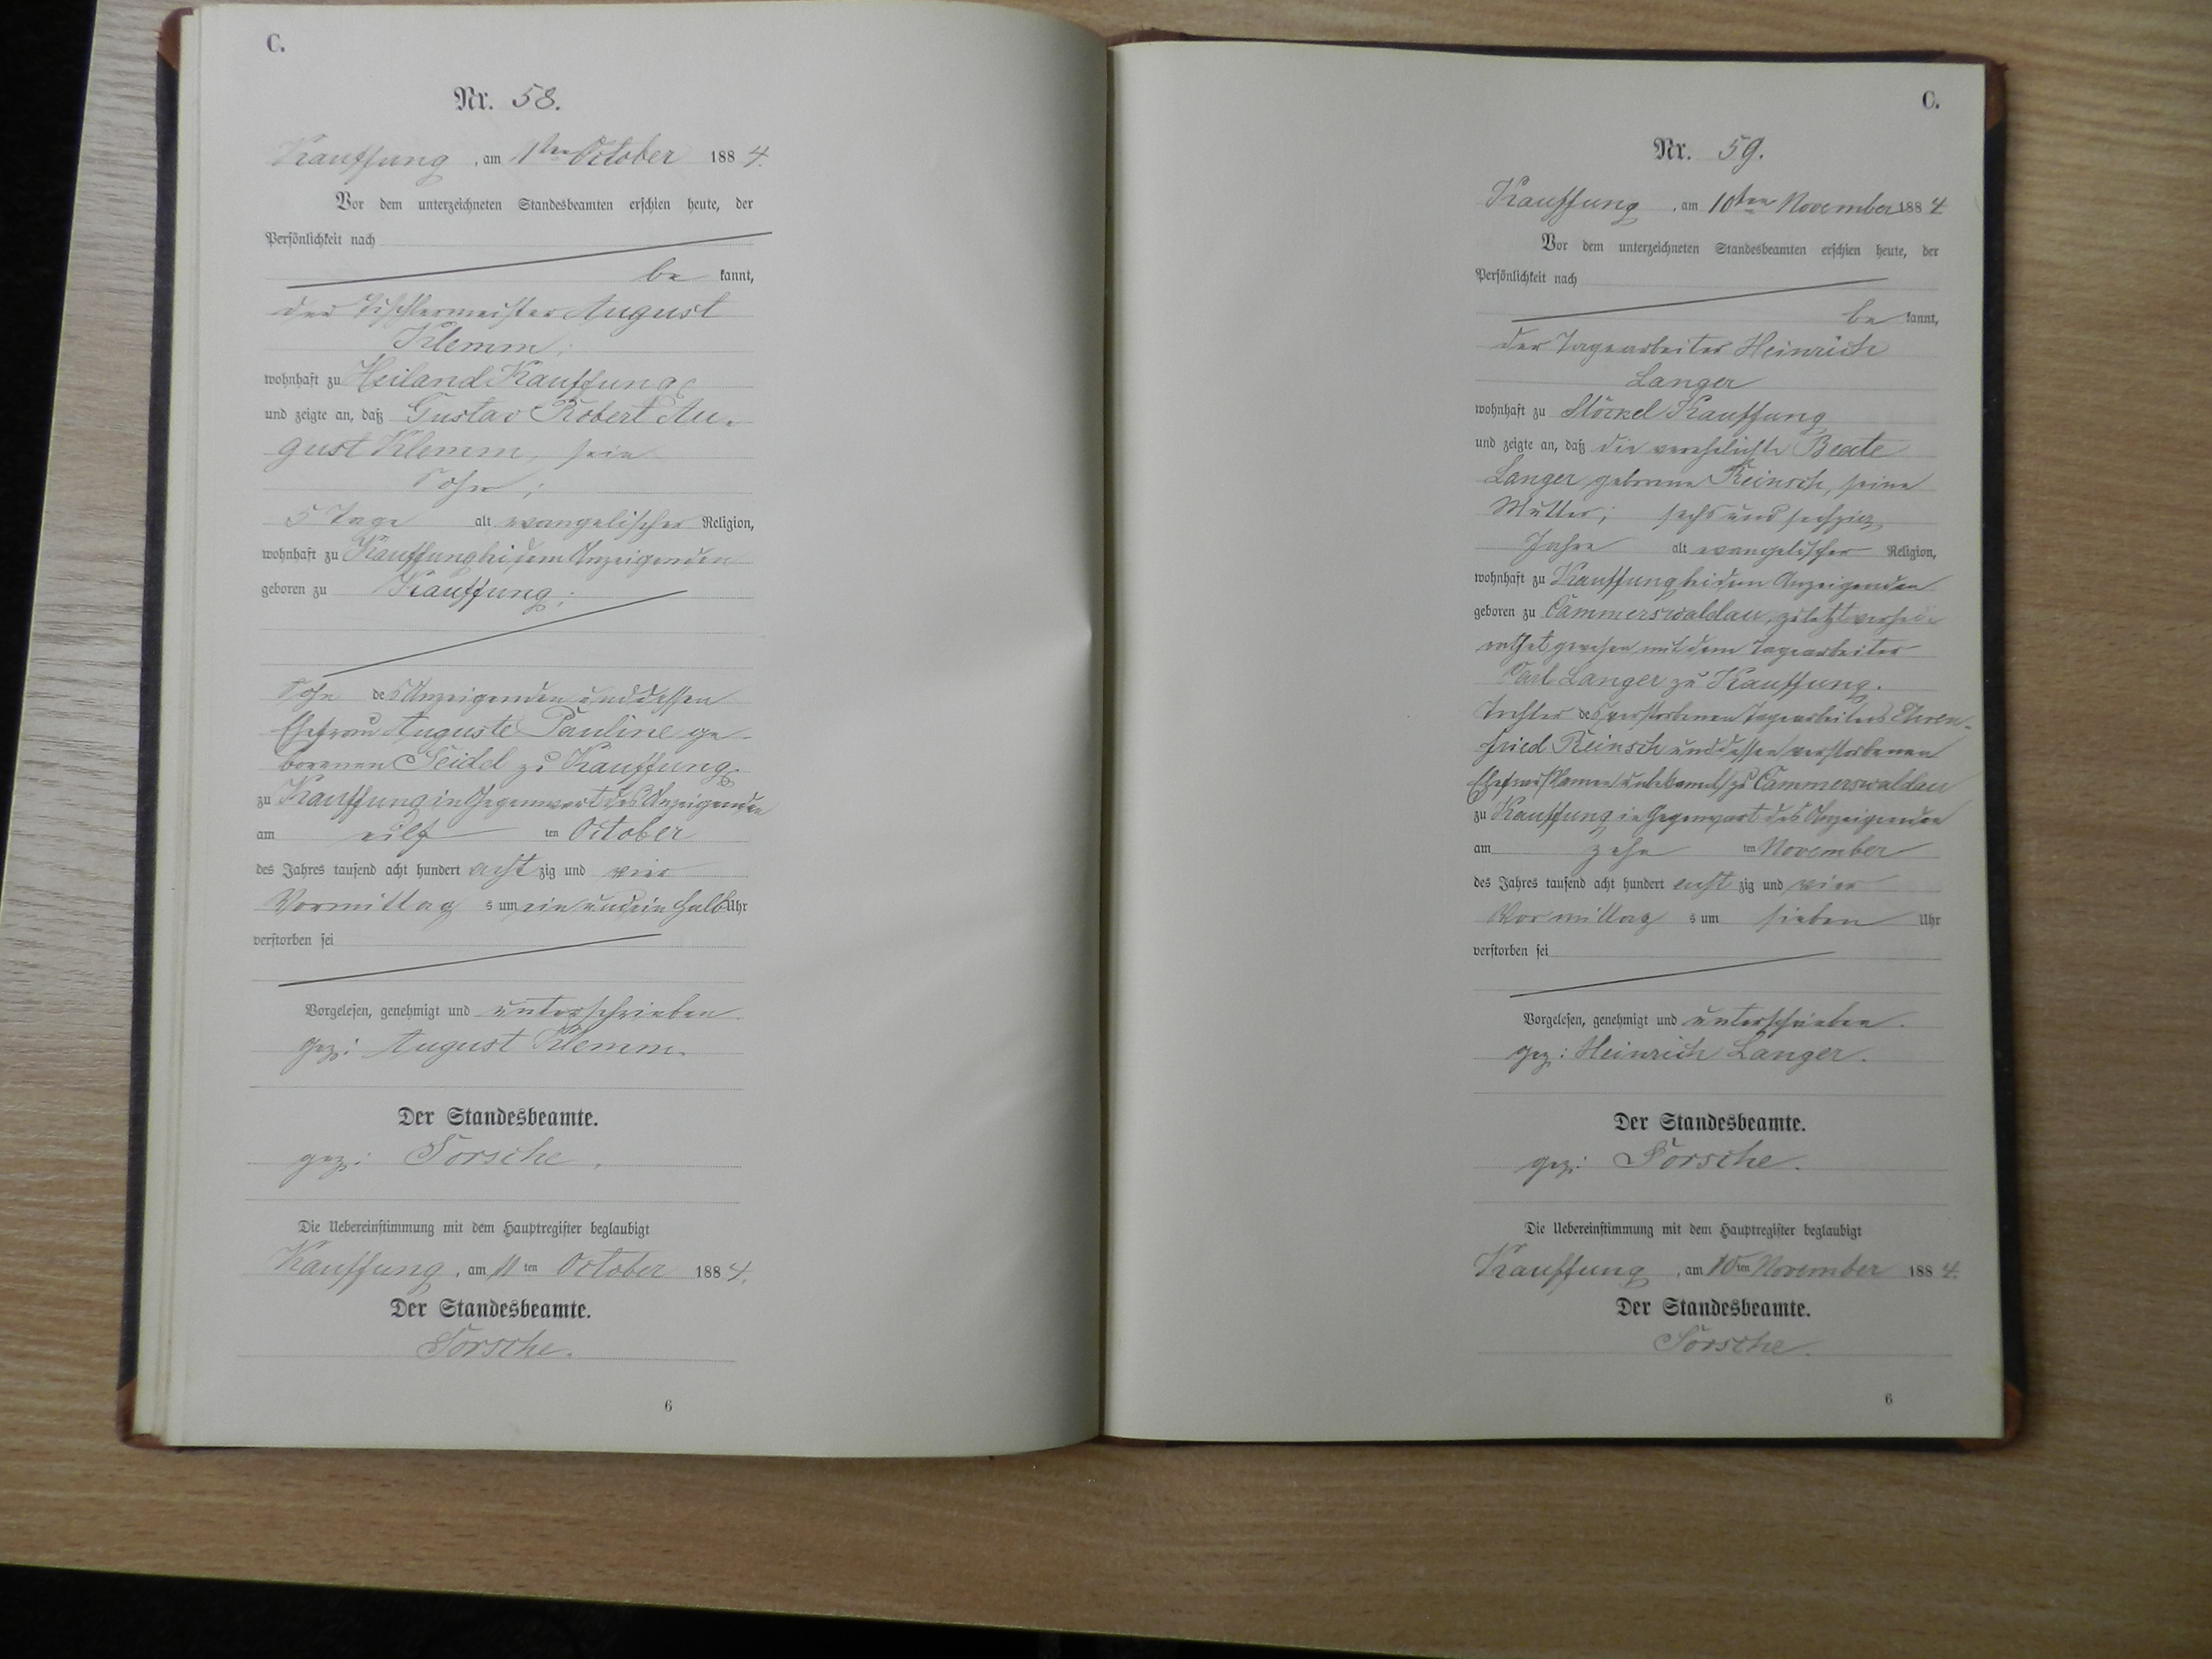 C.
Nr. 58.
Kauffung, am 11ten October 1884.
Vor dem unterzeichneten Standesbeamten erschien heute, der
Persönlichkeit nach
be kannt,
der Tischlermeister August
Klemm,
wohnhaft zu Heiland Kauffung,
und zeigte an, daß Gustav Robert Au-
gust Klemm, sein
Sohn,
5 Tage alt evangelischer Religion,
wohnhaft zu Kauffung bei dem Anzeigenden
geboren zu Kauffung,
Sohn des Anzeigenden und dessen
Ehefrau Auguste Pauline ge-
borenen Seidel zu Kauffung
zu Kauffung in Gegenwart des Anzeigenden
am eilf ten October
des Jahres tausend acht hundert acht zig und vier
Vormittag s um ein und ein halb Uhr
verstorben sei
Vorgelesen, genehmigt und unterschrieben.
gez: August Klemm.
Der Standesbeamte.
gez: Torsche.
Die Uebereinstimmung mit dem Hauptregister beglaubigt
Kauffung, am 11 ten October 1884.
Der Standesbeamte.
Torsche.
6
C.
Nr. 59.
Kauffung, am 10ten November 1884
Vor dem unterzeichneten Standesbeamten erschien heute, der
Persönlichkeit nach
be kannt,
der Tagearbeiter Heinrich
Langer
wohnhaft zu Stöckel Kauffung
und zeigte an, daß die verehelichte Beate
Langer geborene Reinsch, seine
Mutter; sechs und sechzig
Jahre alt evangelischer Religion,
wohnhaft zu Kauffung bei dem Anzeigenden
geboren zu Cammerswaldau, zuletzt verhei-
rathet gewesen mit dem Tagearbeiter
Karl Langer zu Kauffung.
Tochter des verstorbenen Tagearbeiters Ehren-
fried Reinsch und dessen verstorbenen
Ehefrau (Namen unbekannt) zu Cammerswaldau
zu Kauffung in Gegenwart des Anzeigenden
am zehn ten November
des Jahres tausend acht hundert acht zig und vier
Vormittag s um sieben Uhr
verstorben sei
Vorgelesen, genehmigt und unterschrieben.
gez: Heinrich Langer.
Der Standesbeamte.
gez: Torsche.
Die Uebereinstimmung mit dem Hauptregister beglaubigt
Kauffung, am 10 ten November 1884.
Der Standesbeamte.
Torsche.
6